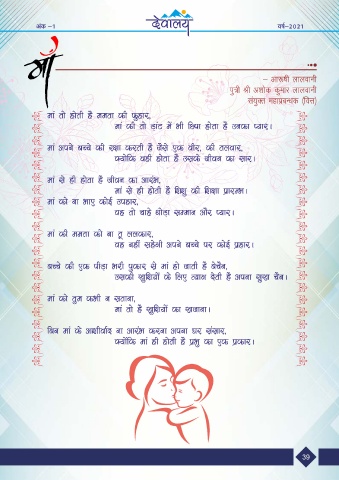 अंक –1
देवालय
वर्ष–2021
माँ
– आरूषी लालवानी
पुत्री श्री अशोक कुमार लालवानी
संयुक्त महाप्रबन्धक (वित्त)
मां तो होती है ममता की फुहार,
मां की तो डांट में भी छिपा होता है उनका प्यार।
मां अपने बच्चे की रक्षा करती है जैसे एक वीर, की तलवार,
क्योंकि वही होता है उसके जीवन का सार।
मां से ही होता है जीवन का आरंभ,
मां से ही होती है शिशु की शिक्षा प्रारम्भ।
मां को ना भाए कोई उपहार,
वह तो चाहे थोड़ा सम्मान और प्यार।
मां की ममता को ना तू ललकार,
वह नहीं सहेगी अपने बच्चे पर कोई प्रहार।
बच्चे की एक पीड़ा भरी पुकार से मां हो जाती है बेचैन,
उसकी खुशियों के लिए त्याग देती है अपना सुख चैन।
मां को तुम कभी न सताना,
मां तो है खुशियों का खजाना।
बिन मां के आशीर्वाद ना आरंभ करना अपना घर संसार,
क्योंकि मां ही होती है प्रभु का एक प्रकार।
39